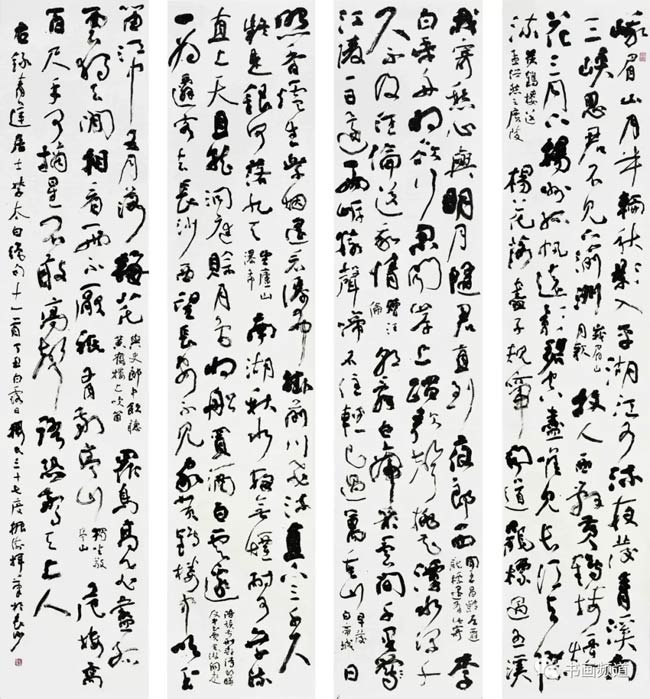 峨眉山月半輪秋影入平湖江水流夜發青溪向
三峽思君不見下渝洲 峨眉山月歌 故人西辭黃鶴樓煙
花三月下揚州孤帆遠影碧空盡唯見長江天際
流 黃鶴樓送孟浩然之廣陵 楊花落盡子規啼聞道龍標過五溪
我寄愁心與明月隨君直到夜郎西 聞王昌齡左遷龍標遙有此寄 李
白乘舟將欲行忽聞岸上踏歌聲桃花潭水深千
尺不及汪倫送我情 贈汪倫 朝辭白帝彩雲間千里
江陵一日還兩岸猿聲啼不住輕已過萬重山 早發白帝城 日
照香爐生紫煙遙看瀑布掛前川飛流直下三千尺
疑是銀河落九天 望廬山瀑布 南湖秋水夜無煙耐可乘流
直上天且就洞庭賒月色將船買酒白雲邊
一為遷客去長沙西望長安不見家黃鶴樓中吹玉
笛江中五月落梅花 與史郎中飲聽黃鶴樓上吹笛 眾鳥高飛盡孤
雲獨去閒相看兩不厭祗有敬亭山 獨坐敬亭山 危樓高
百尺手可摘星辰不敢高聲語恐驚天上人
右錄青蓮居士李太白絕句十一首丁丑白露日 三十七度 於長沙
书画频道